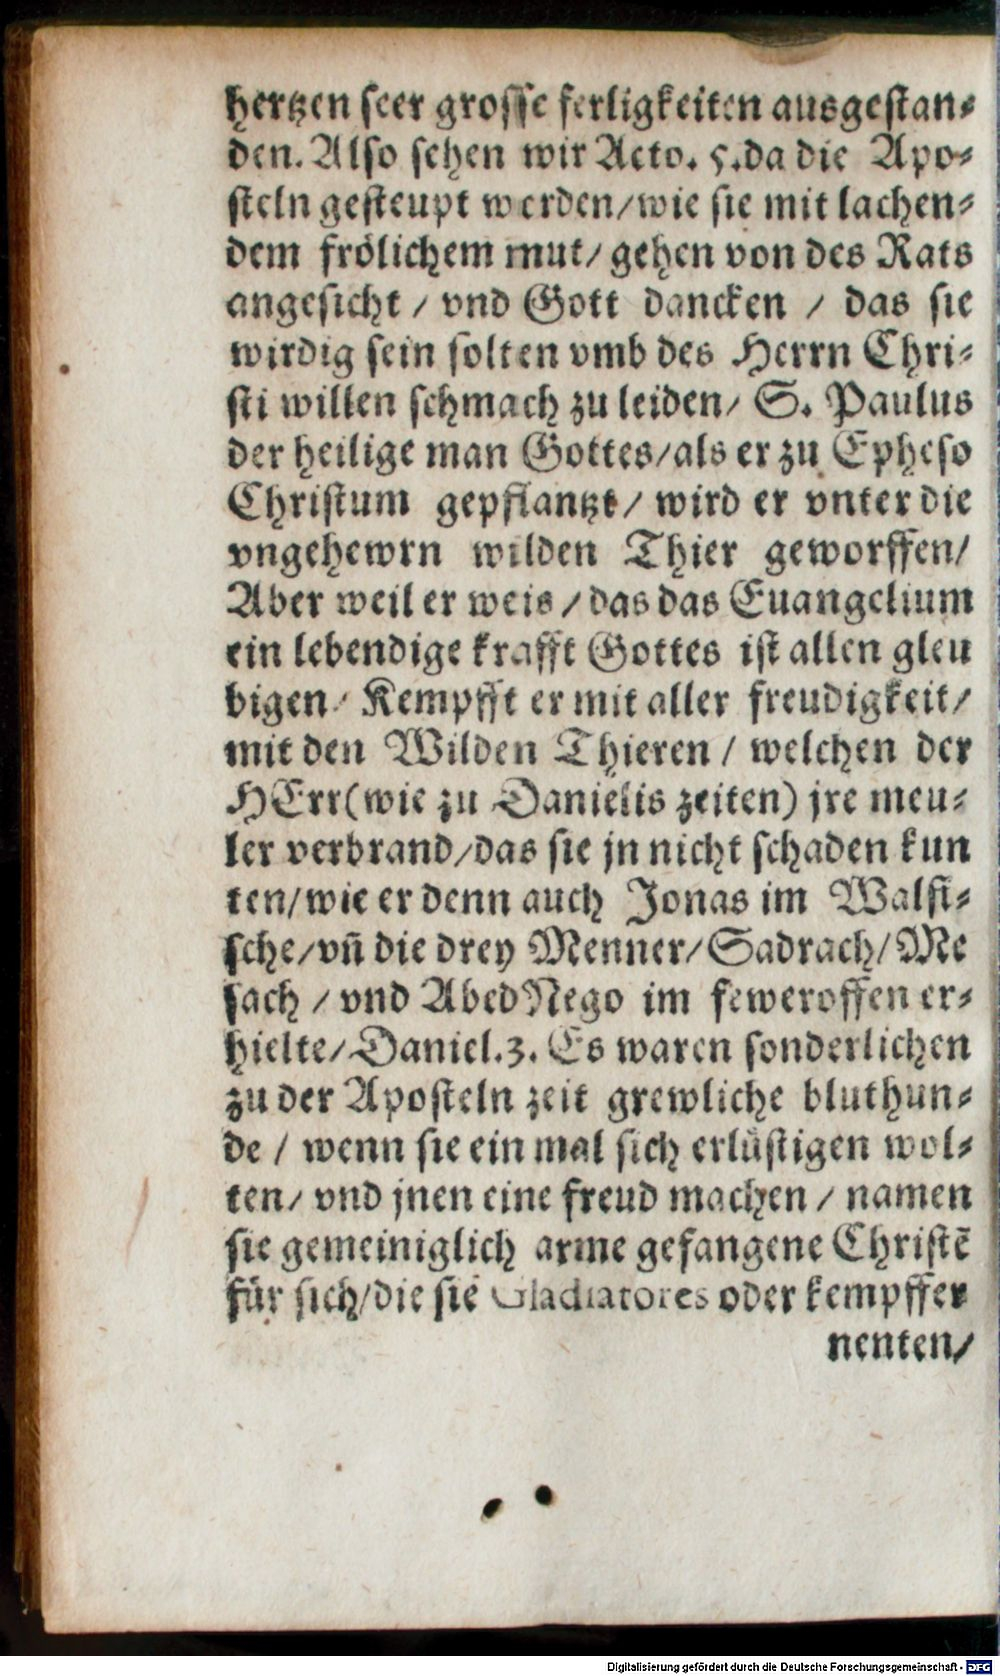 hertzen seer grosse ferligkeiten ausgestan⸗
den. Also sehen wir Acto. 5. da die Apo⸗
steln gesteupt werden/wie sie mit lachen⸗
dem frölichem mut/ gehen von des Rats
angesicht / vnd Gott dancken / das sie
wirdig sein solten vmb des Herrn Chri⸗
sti willen schmach zu leiden/ S. Paulus
der heilige man Gottes/als er zu Epheso
Christum gepflantzt/ wird er vnter die
vngehewrn wilden Thier geworffen/
Aber weil er weis / das das Euangelium
ein lebendige krafft Gottes ist allen gleu
bigen/ Kempfft er mit aller freudigkeit/
mit den Wilden Thieren / welchen der
HErr(wie zu Danielis zeiten) jre meu⸗
ler verbrand/das sie jn nicht schaden kun
ten/wie er denn auch Jonas im Walfi⸗
sche/vñ die drey Menner/Sadrach/Me
sach / vnd AbedNego im feweroffen er⸗
hielte/Daniel.3. Es waren sonderlichen
zu der Aposteln zeit grewliche bluthun⸗
de / wenn sie ein mal sich erlüstigen wol⸗
ten/ vnd jnen eine freud machen / namen
sie gemeiniglich arme gefangene Christē
für sich/die sie Gladiatores oder kempffer
nenten/
Digitalisierung gefördert durch die Deutsche Forschungsgemeinschaft - DFG